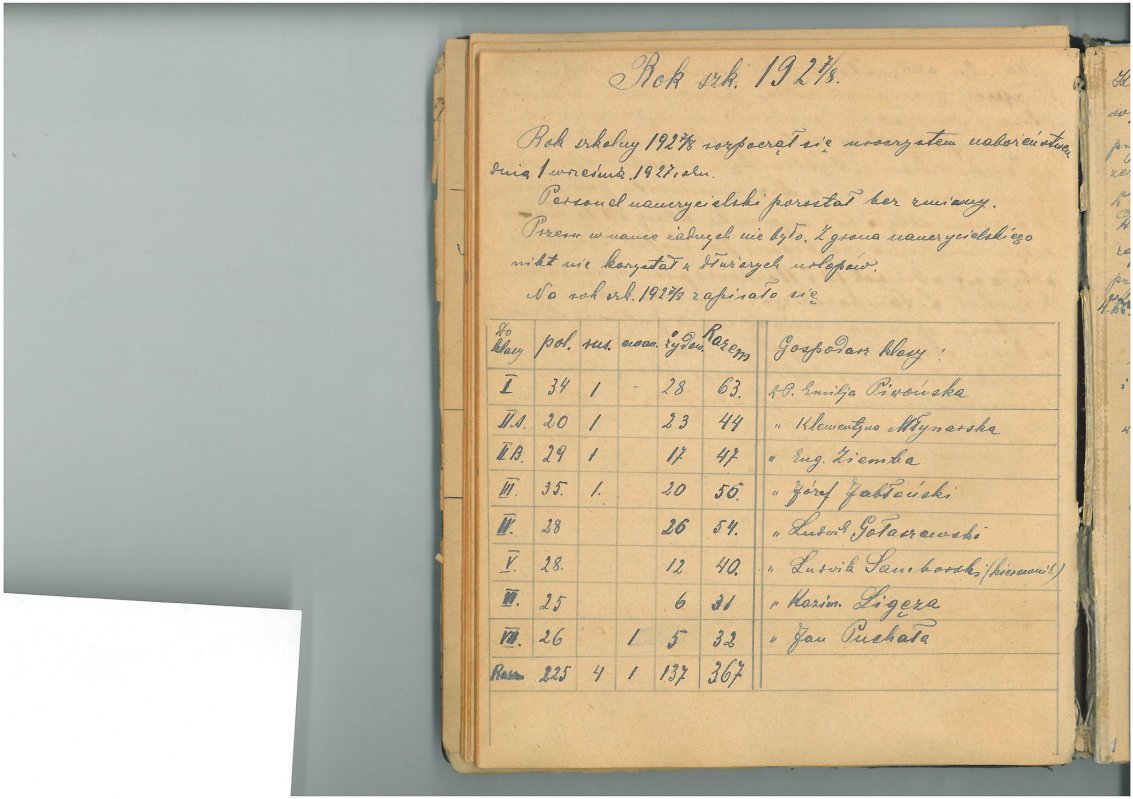 Rok szk. 1927/8.
Rok szkolny 1927/8 rozpoczął się uroczystem nabożeństwem
dnia 1 września 1927 roku.
Personel nauczycielski pozostał bez zmiany.
Przerw w nauce żadnych nie było. Z grona nauczycielskiego
nikt nie korzystał z dłuższych urlopów.
Na rok szk. 1927/8 zapisało się
Do klasy pol. rus. ewan. żydow. Razem Gospodarz klasy:
I 34 1 - 28 63. P. Emilja Piwońska
II A. 20 1 23 44 " Klementyna Młynarska
II B. 29 1 17 47 " Eug. Ziemba
III. 35. 1. 20 56. " Józef Jabłoński
IV. 28 26 54. " Ludwik Gołaszewski
V. 28. 12 40. " Ludwik Samborski (kierownik)
VI. 25 6 31 " Kazim. Ligęza
VII. 26 1 5 32 " Jan Puchała
Razem 225 4 1 137 367